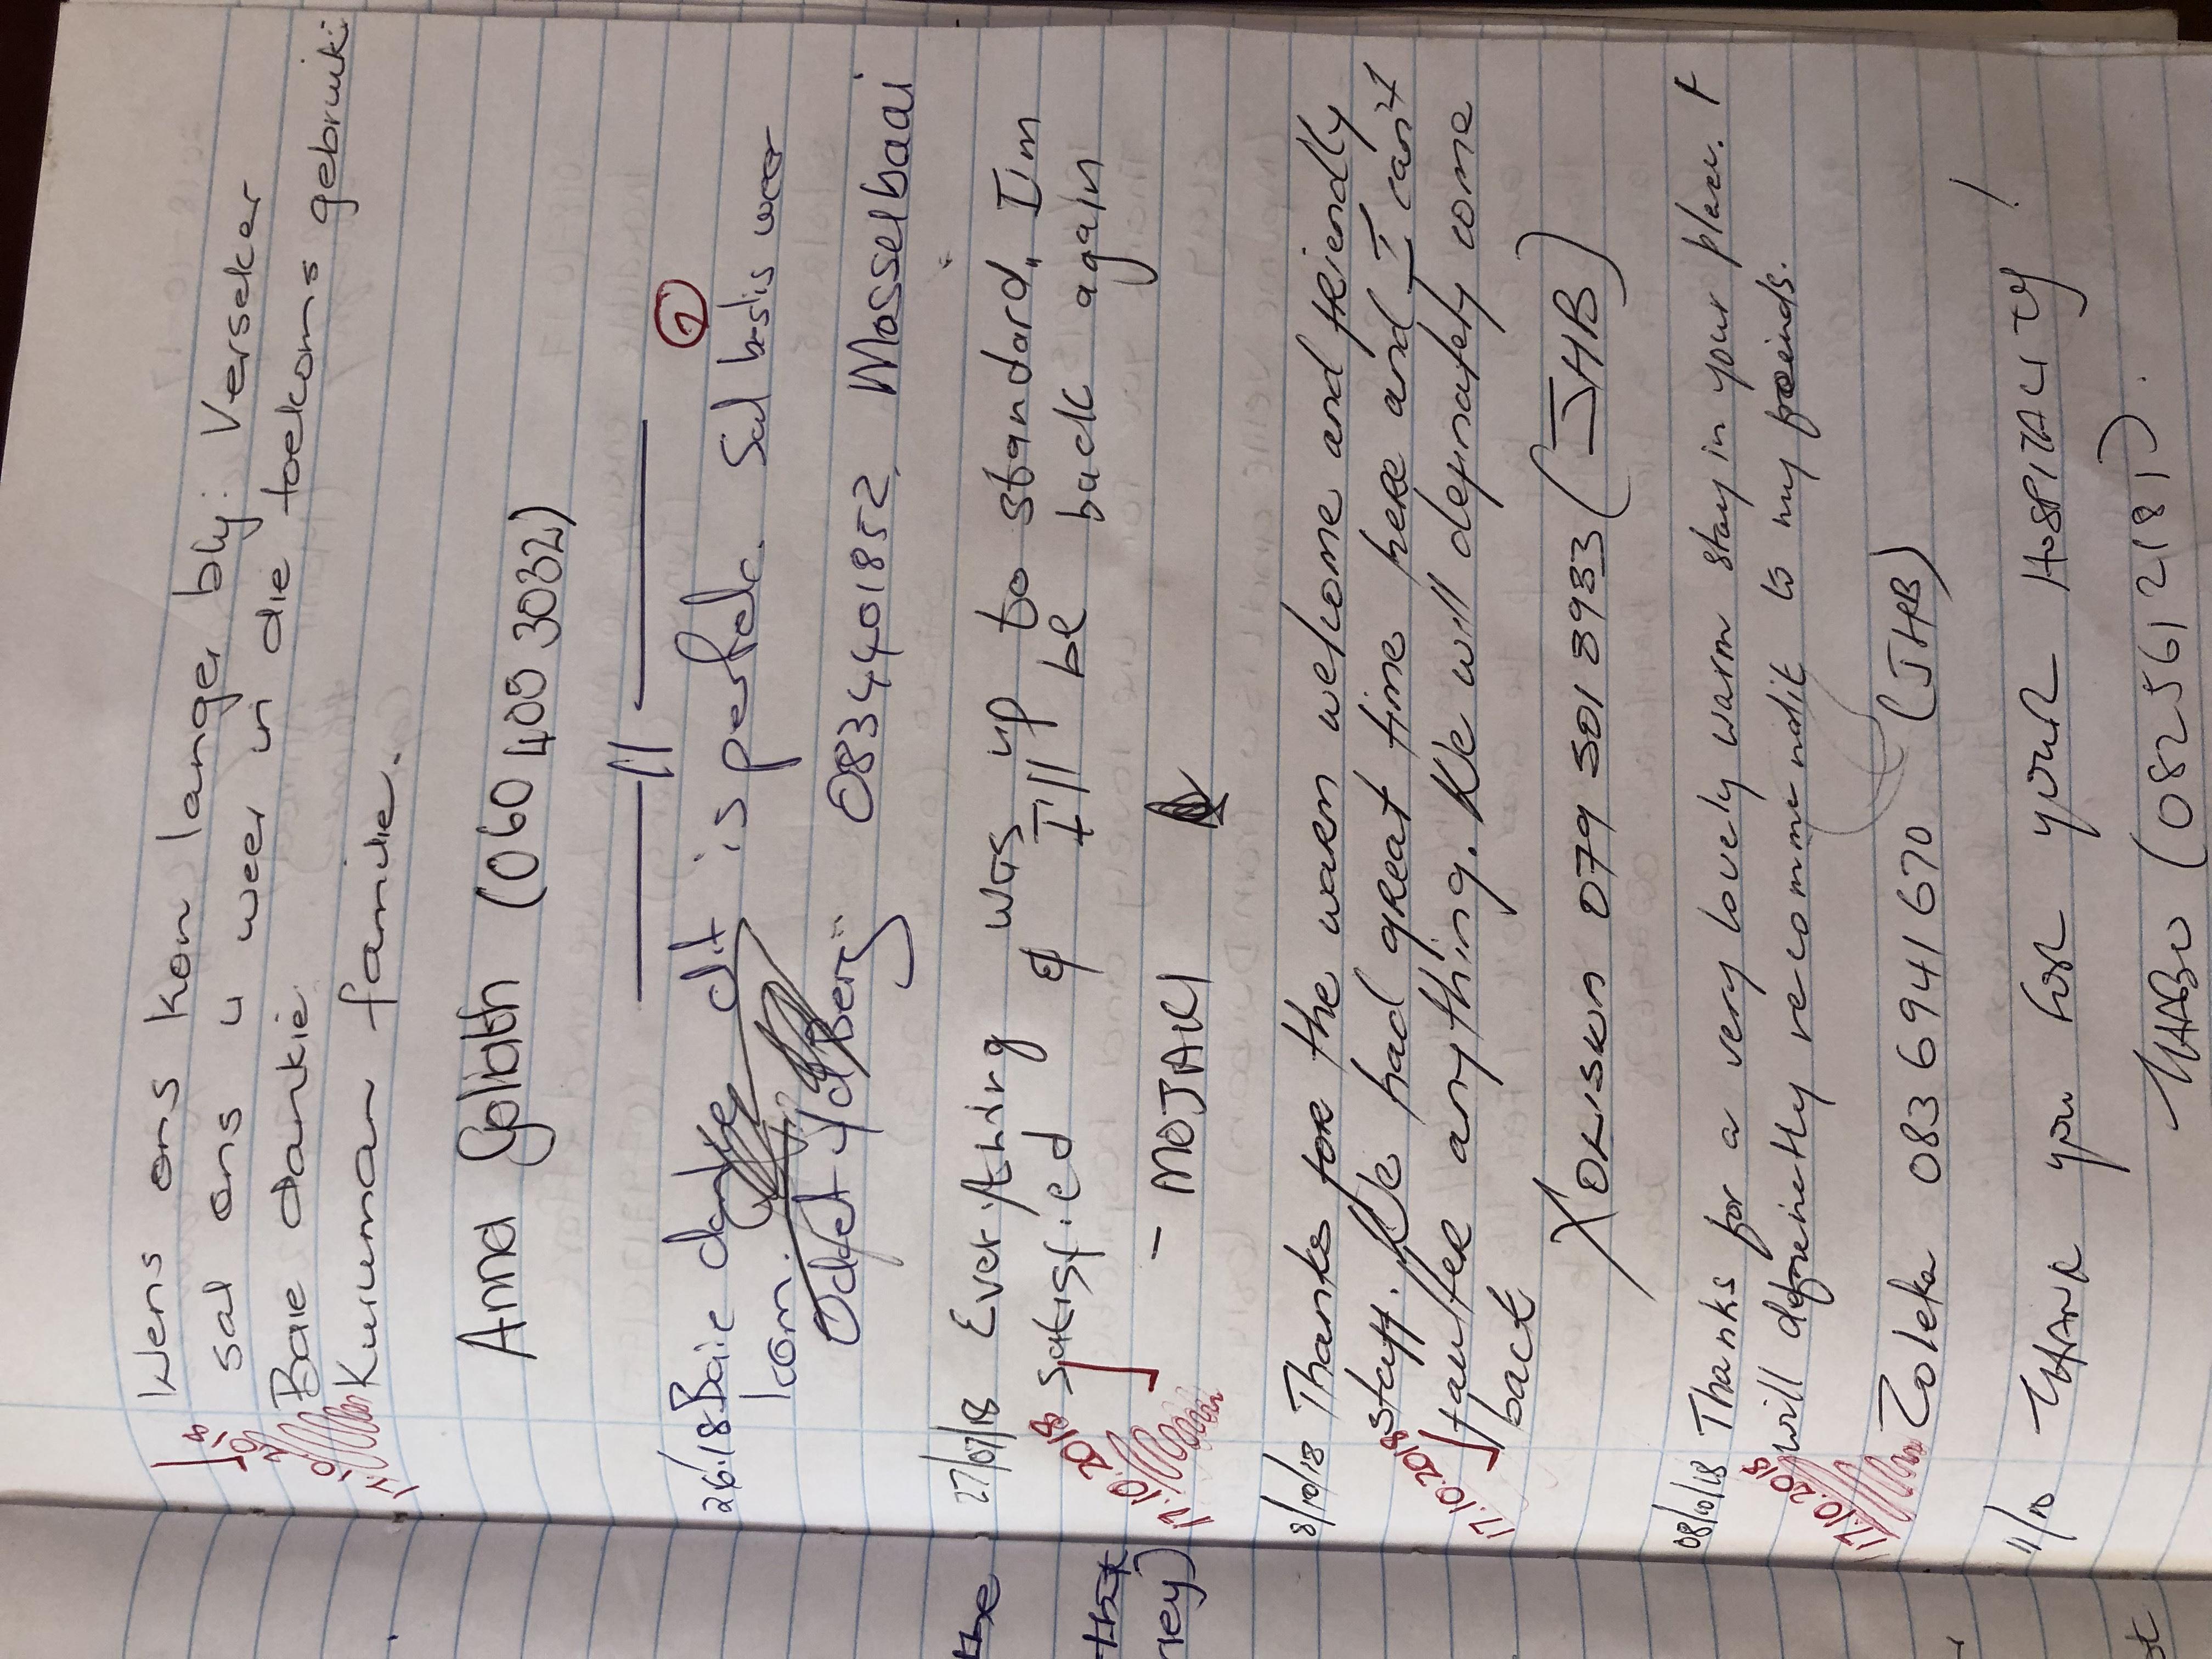 Wens ons kon langer bly. Verseker
sal ons u weer in die toekoms gebruik.
Baie dankie
Kuruman familie.
17.10.2018
Anna Goliath (060 405 3032)
— 11 —
26.18 Baie dankie dit is perfek. Sal beslis weer
kom.
Odett Ydberg 0834401852. Mosselbaai
27/07/18 Everything was up to standard, I'm
satisfied & I'll be back again
17.10.2018
- MOJAKI
8/10/18 Thanks for the warm welcome and friendly
staff. We had great time here and I can't
faulter anything. We will definately come
back
17.10.2018
Xoliswa 079 501 3933 (JHB)
08/10/18 Thanks for a very lovely warm stay in your place. I
will definetly recommendit to my freinds.
17.10.2018
Zoleka 083 6941 670 (JHB)
11/10 THANK you FOR youR HOSPITALITY!
THABO (082 561 2181).
the
ney)